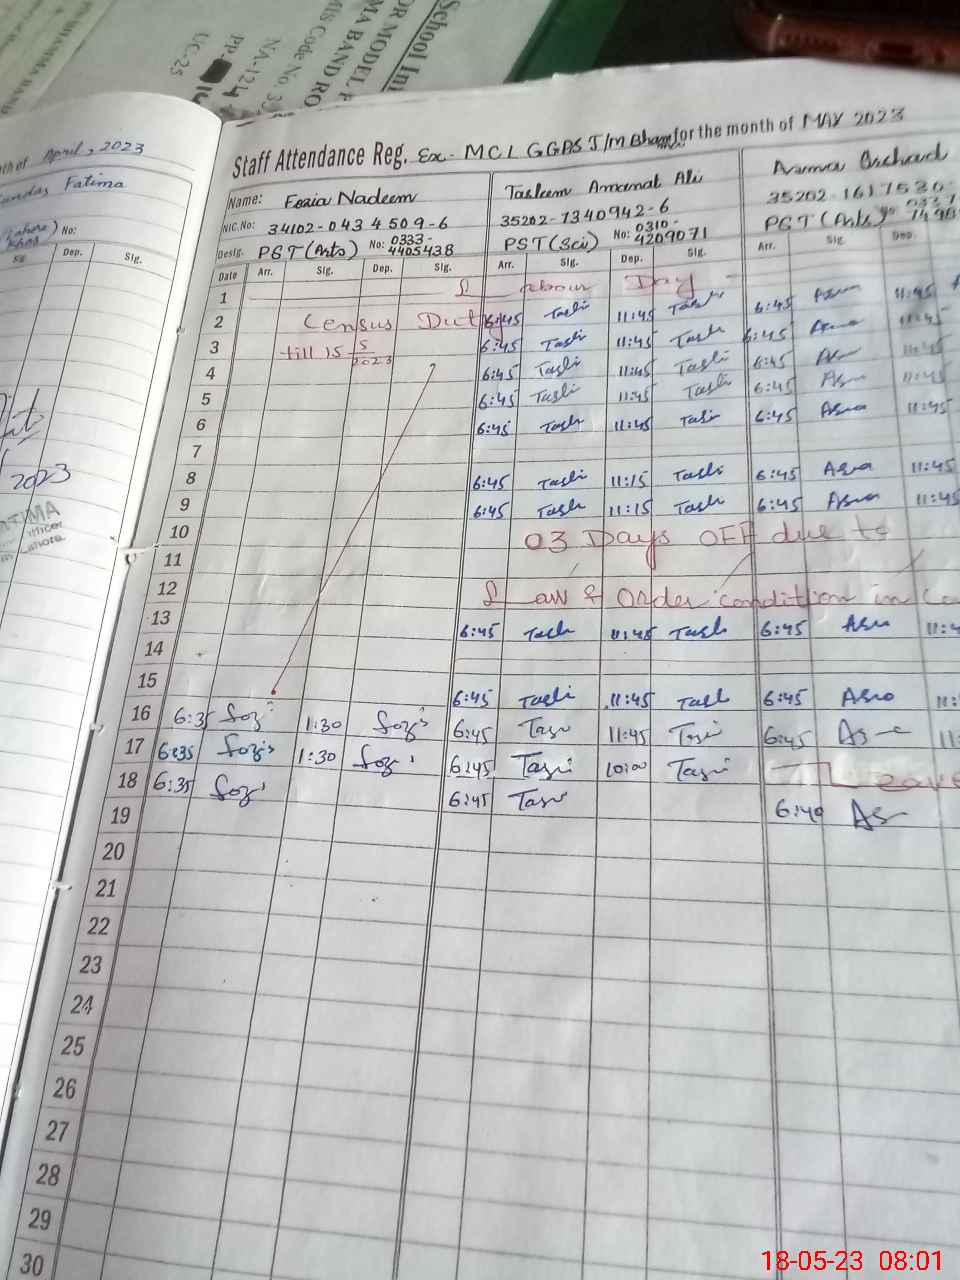 School Inf
OR MODEL P
MA BAND RO
MIS Code No. 35
NA-124
PP-
UC-25
th of April, 2023
Fatima
No:
Sig. Dep. Sig.
2023
FATIMA
Officer
Lahore
Staff Attendance Reg. Ex- MCL GGPS for the month of MAY 2023
Name: Fozia Nadeem Tasleem Amanat Ali
NIC.No: 34102-0434509-6 35202-1340942-6 35202-1617530-
Desig. PST (Arts) No: 0333-4405438 PST (Sci) No: 0310-4209071 PST (Arts)
Date Arr. Sig. Dep. Sig. Arr. Sig. Dep. Sig. Arr. Sig. Dep.
1 Labour Day
2 Census Duty 6:45 Tasli 11:45 Tasli 6:45 Asma 11:45
3 till 15 5/2023 6:45 Tasli 11:45 Tasli 6:45 Asma 11:45
4 6:45 Tasli 11:45 Tasli 6:45 Asma 11:45
5 6:45 Tasli 11:45 Tasli 6:45 Asma 11:45
6 6:45 Tasli 11:45 Tasli 6:45 Asma 11:45
7
8 6:45 Tasli 11:15 Tasli 6:45 Asma 11:45
9 6:45 Tasli 11:15 Tasli 6:45 Asma 11:45
10 03 Days OFF due to
11
12 Law & Order condition in
13 6:45 Tasli 11:45 Tasli 6:45 Asma 11:4
14
15 6:45 Tasli 11:45 Tasli 6:45 Asma 11:
16 6:35 Fozi 1:30 Fozi 6:45 Tasli 11:45 Tasli 6:45 Asma 11:
17 6:35 Fozi 1:30 Fozi 6:45 Tasli 10:00 Tasli Leave
18 6:35 Fozi 6:45 Tasli 6:40 As
19
20
21
22
23
24
25
26
27
28
29
30
18-05-23 08:01